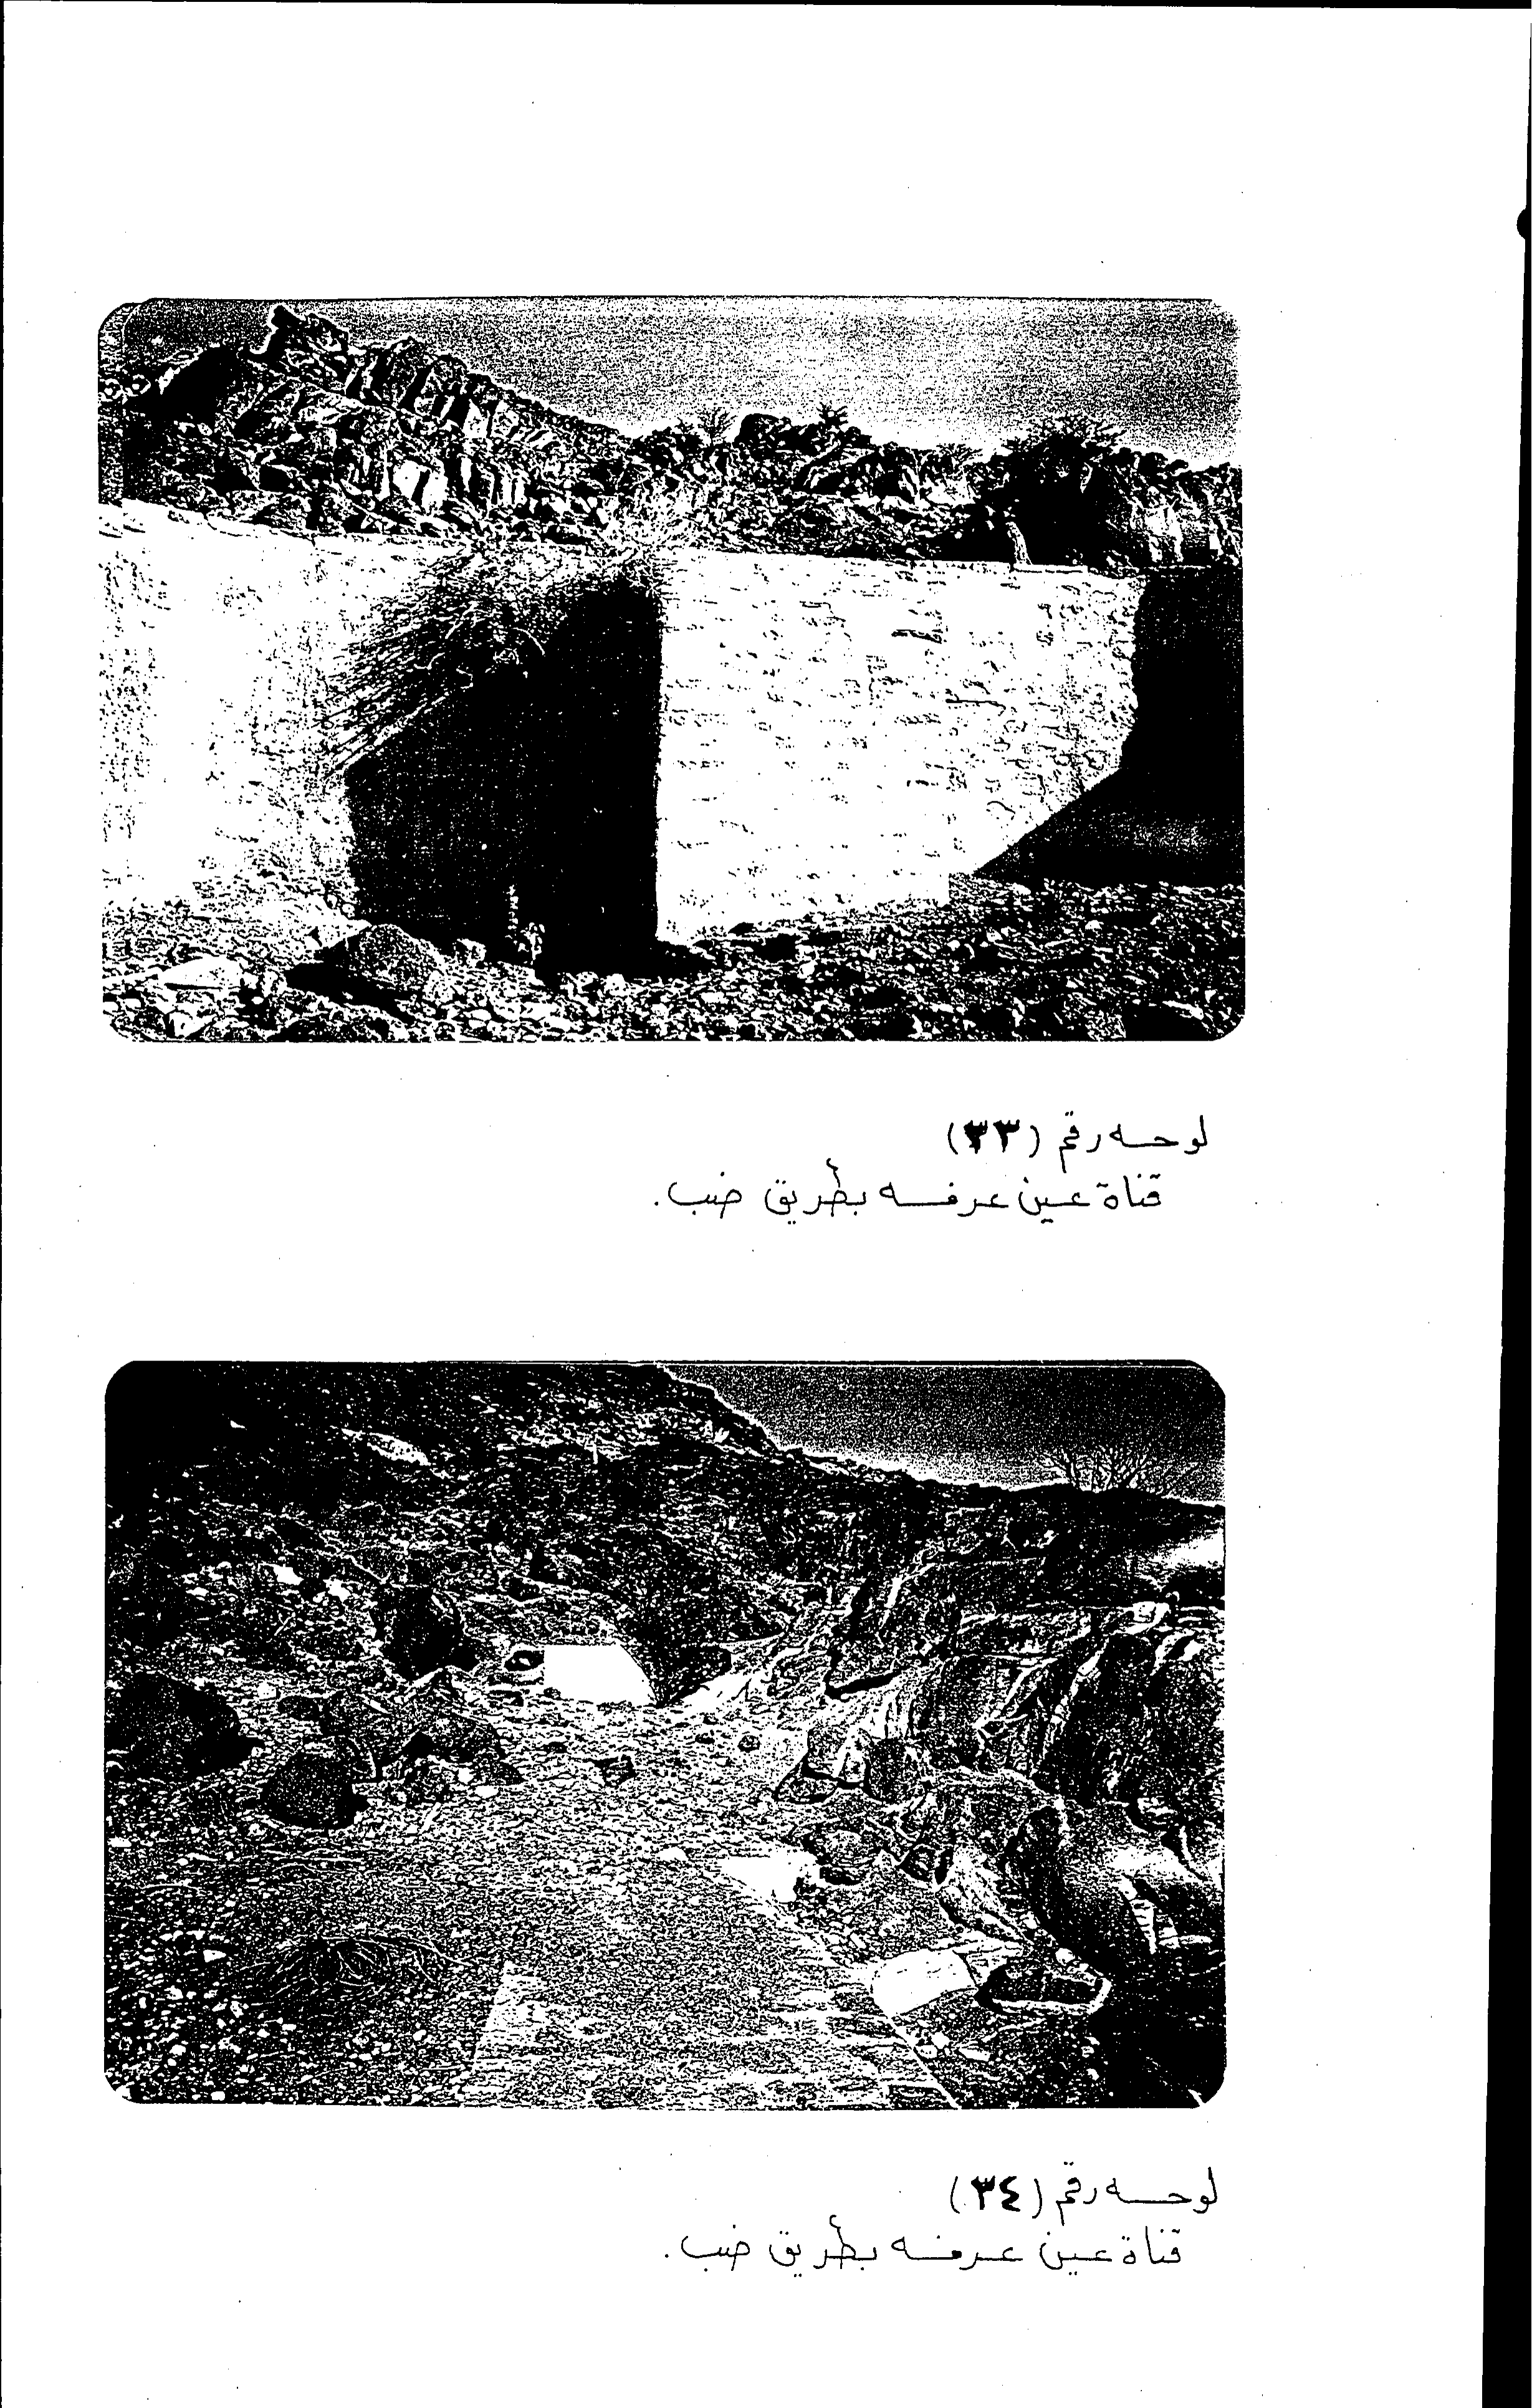 لوحه رقم (٣٣)
قناة عين عرفه بطريق ضب.
لوحه رقم (٣٤)
قناة عين عرفه بطريق ضب.